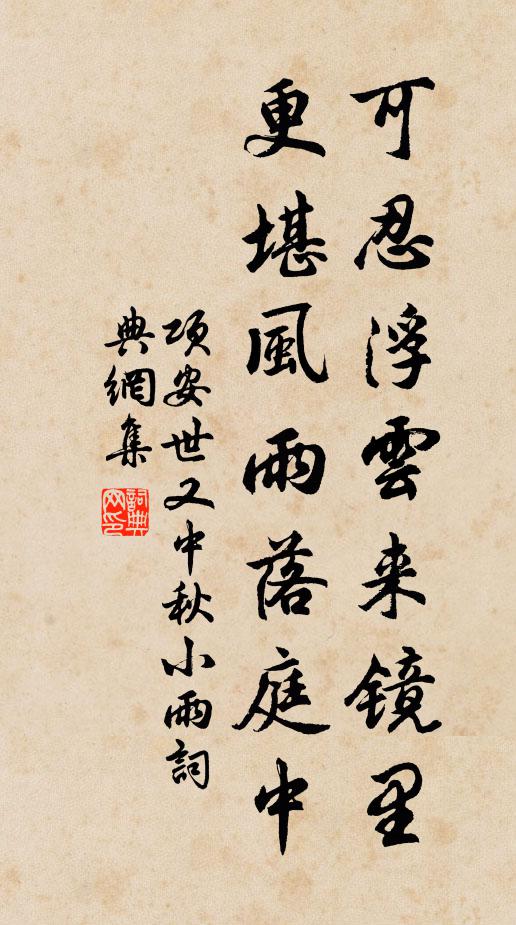 可忍浮雲来镜里
更堪風雨落庭中
项安世又中秋小雨詞
典網集
詞典网印